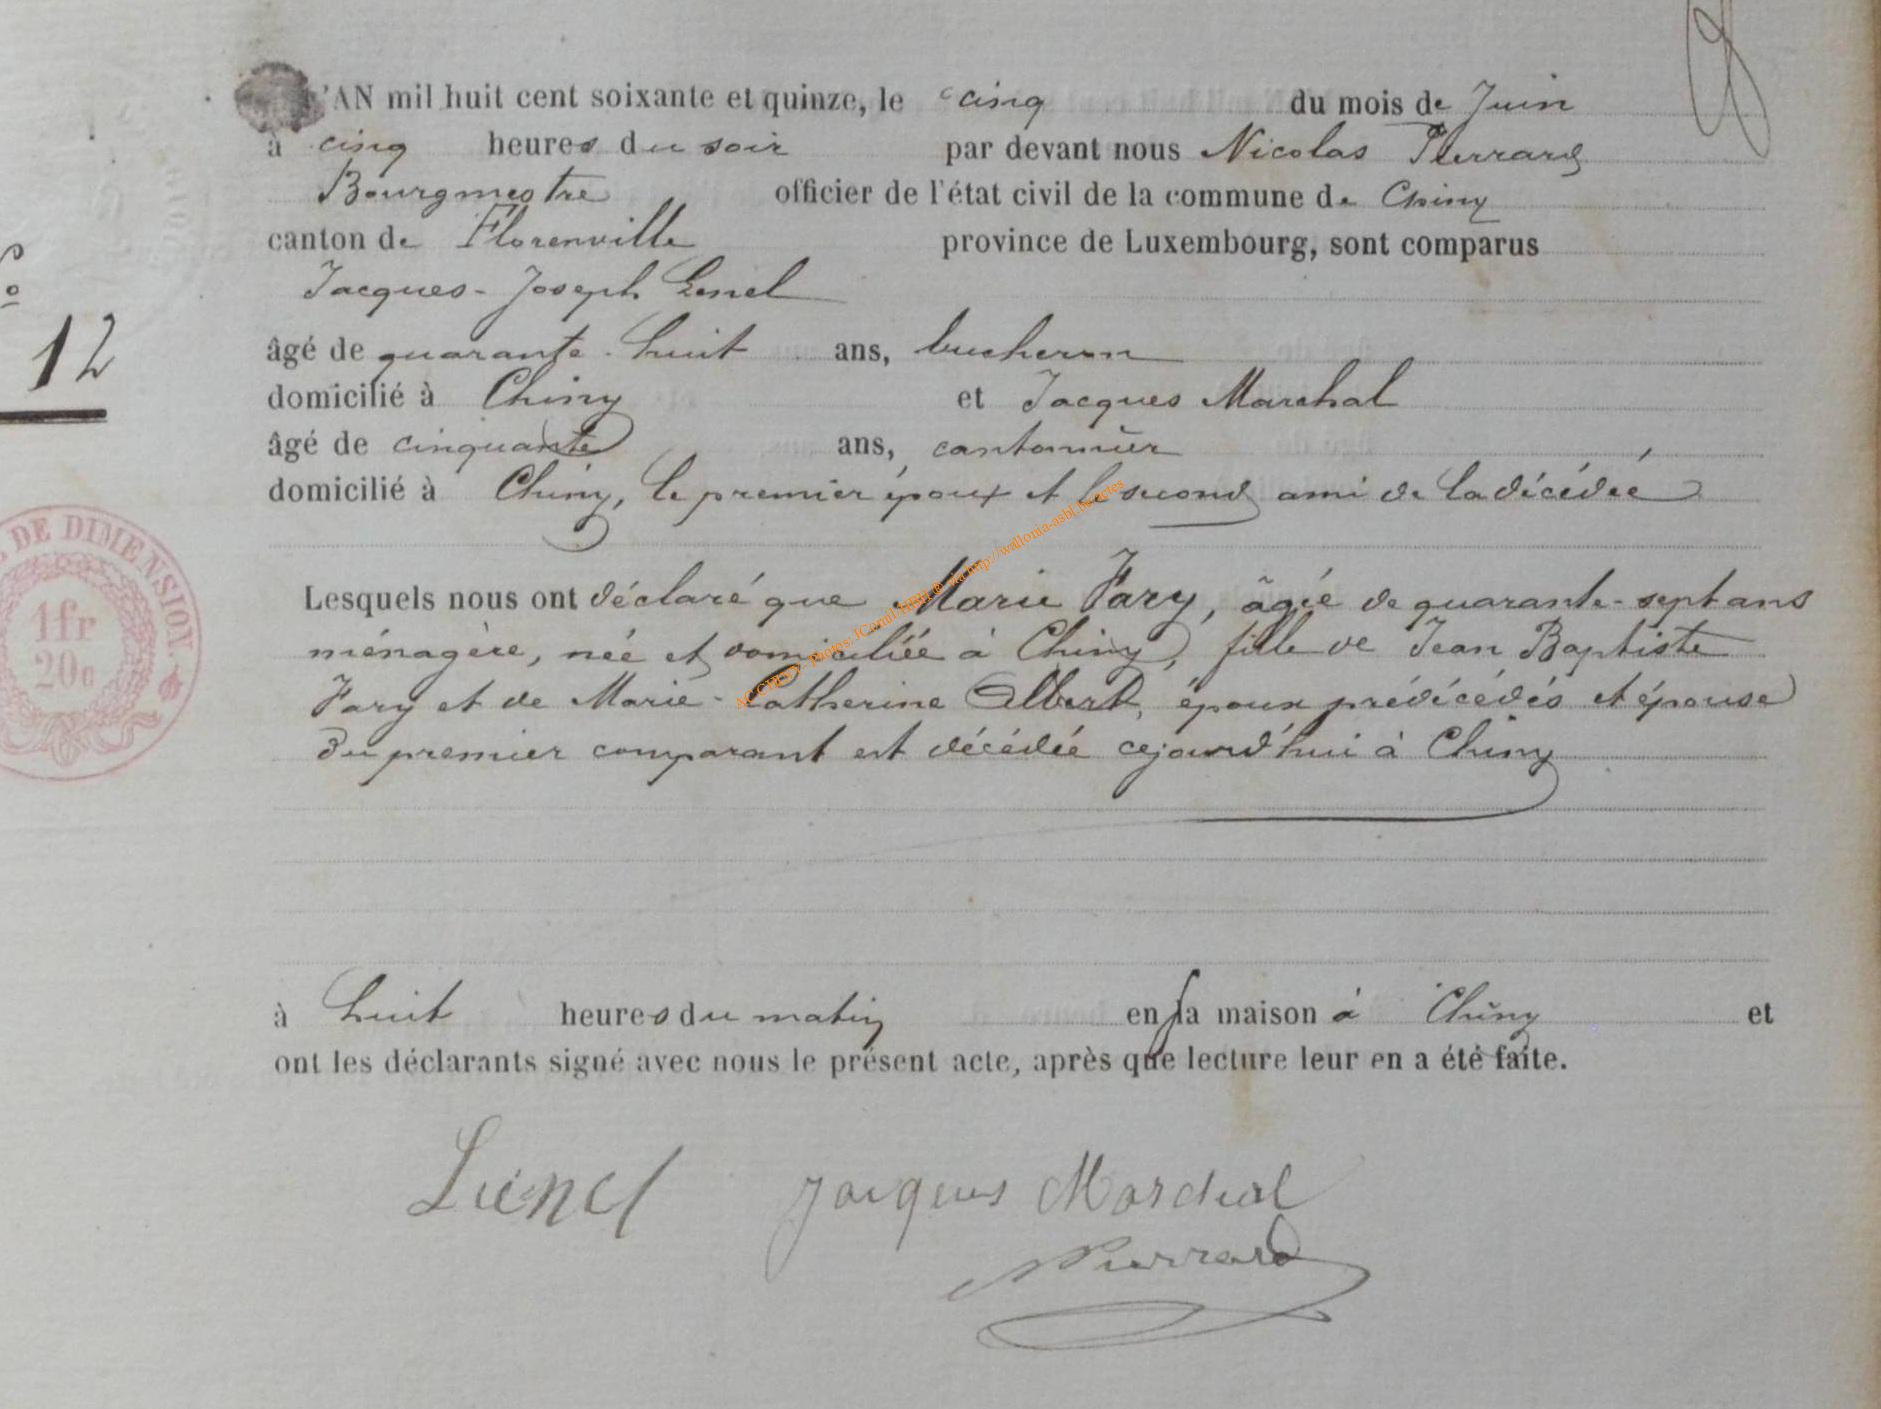 L'AN mil huit cent soixante et quinze, le cinq du mois de Juin
à cinq heures du soir par devant nous Nicolas Pierrard
Bourgmestre officier de l'état civil de la commune de Chiny
canton de Florenville province de Luxembourg, sont comparus
Jacques-Joseph Lienel
N° 12
âgé de quarante-huit ans, bucheron
domicilié à Chiny et Jacques Marchal
âgé de cinquante ans, cantonnier
domicilié à Chiny, le premier époux et le second ami de la décédée
DE DIMENSION.
1fr
20c
Lesquels nous ont déclaré que Marie Fary, âgée de quarante-sept ans
ménagère, née et domiciliée à Chiny, fille de Jean Baptiste
Fary et de Marie-Catherine Albert, époux prédécédés et épouse
du premier comparant est décédée cejourd'hui à Chiny
à huit heures du matin en sa maison à Chiny et
ont les déclarants signé avec nous le présent acte, après que lecture leur en a été faite.
Lienel Jacques Marchal
NPierrard